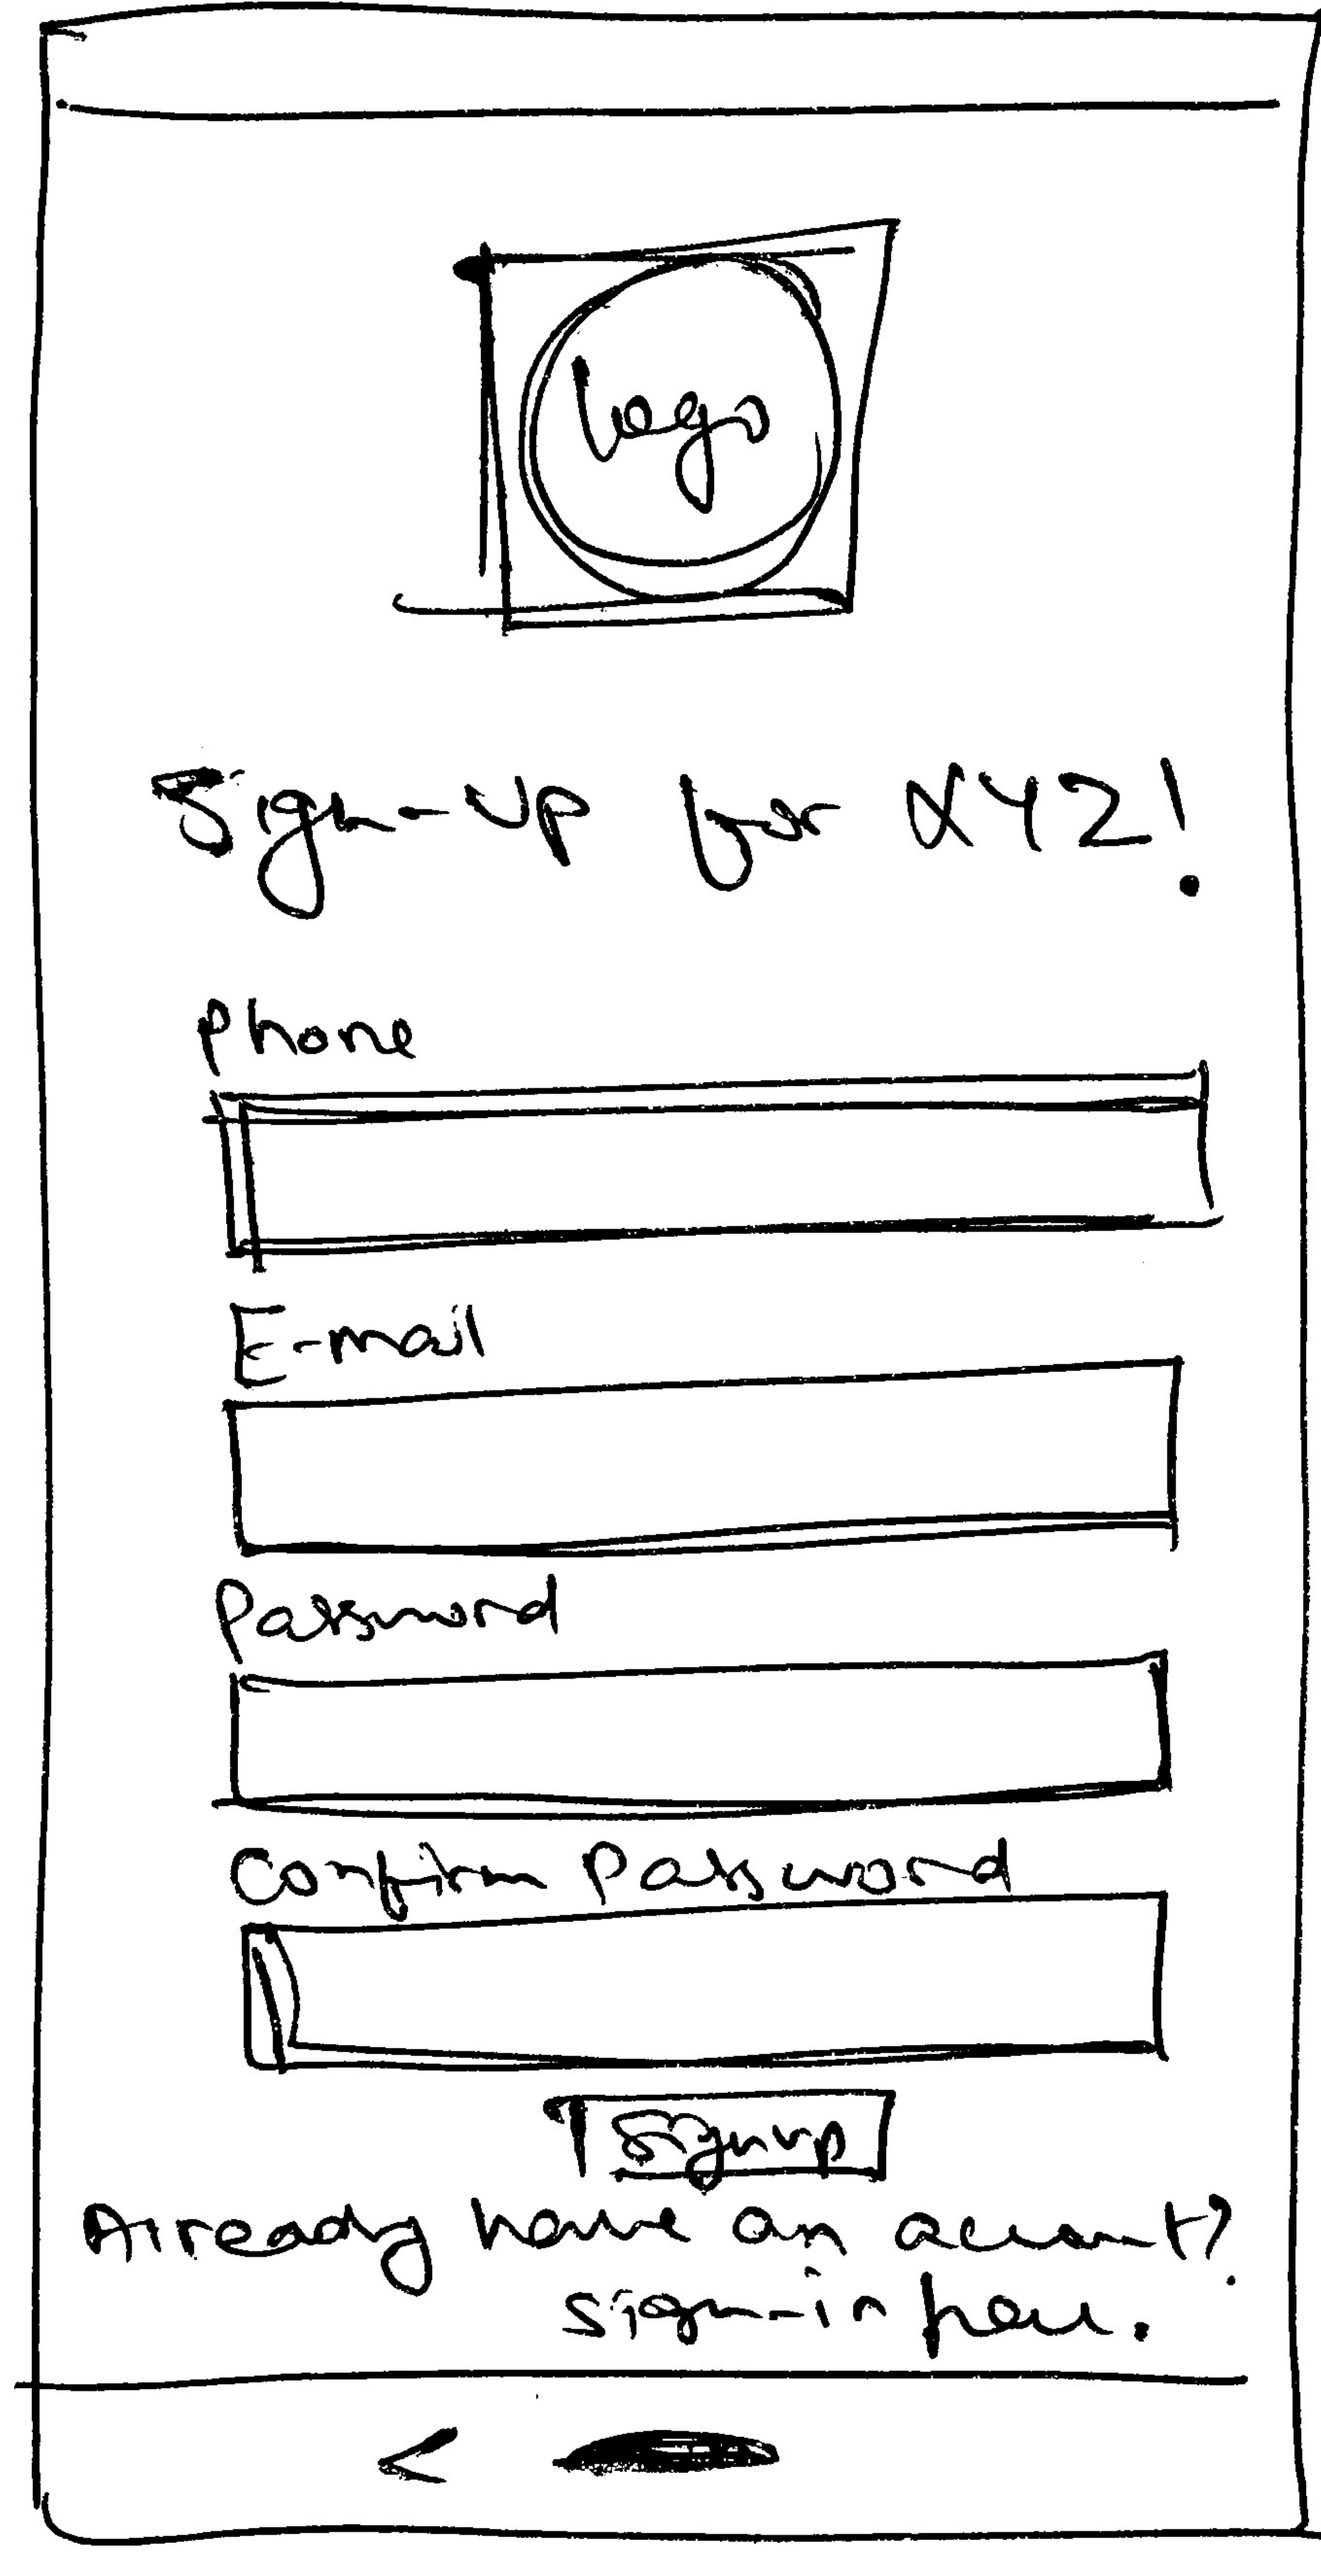 Logo
Sign-up for XYZ!
Phone
E-mail
Password
Confirm Password
Signup
Already have an account?
sign-in here.
<